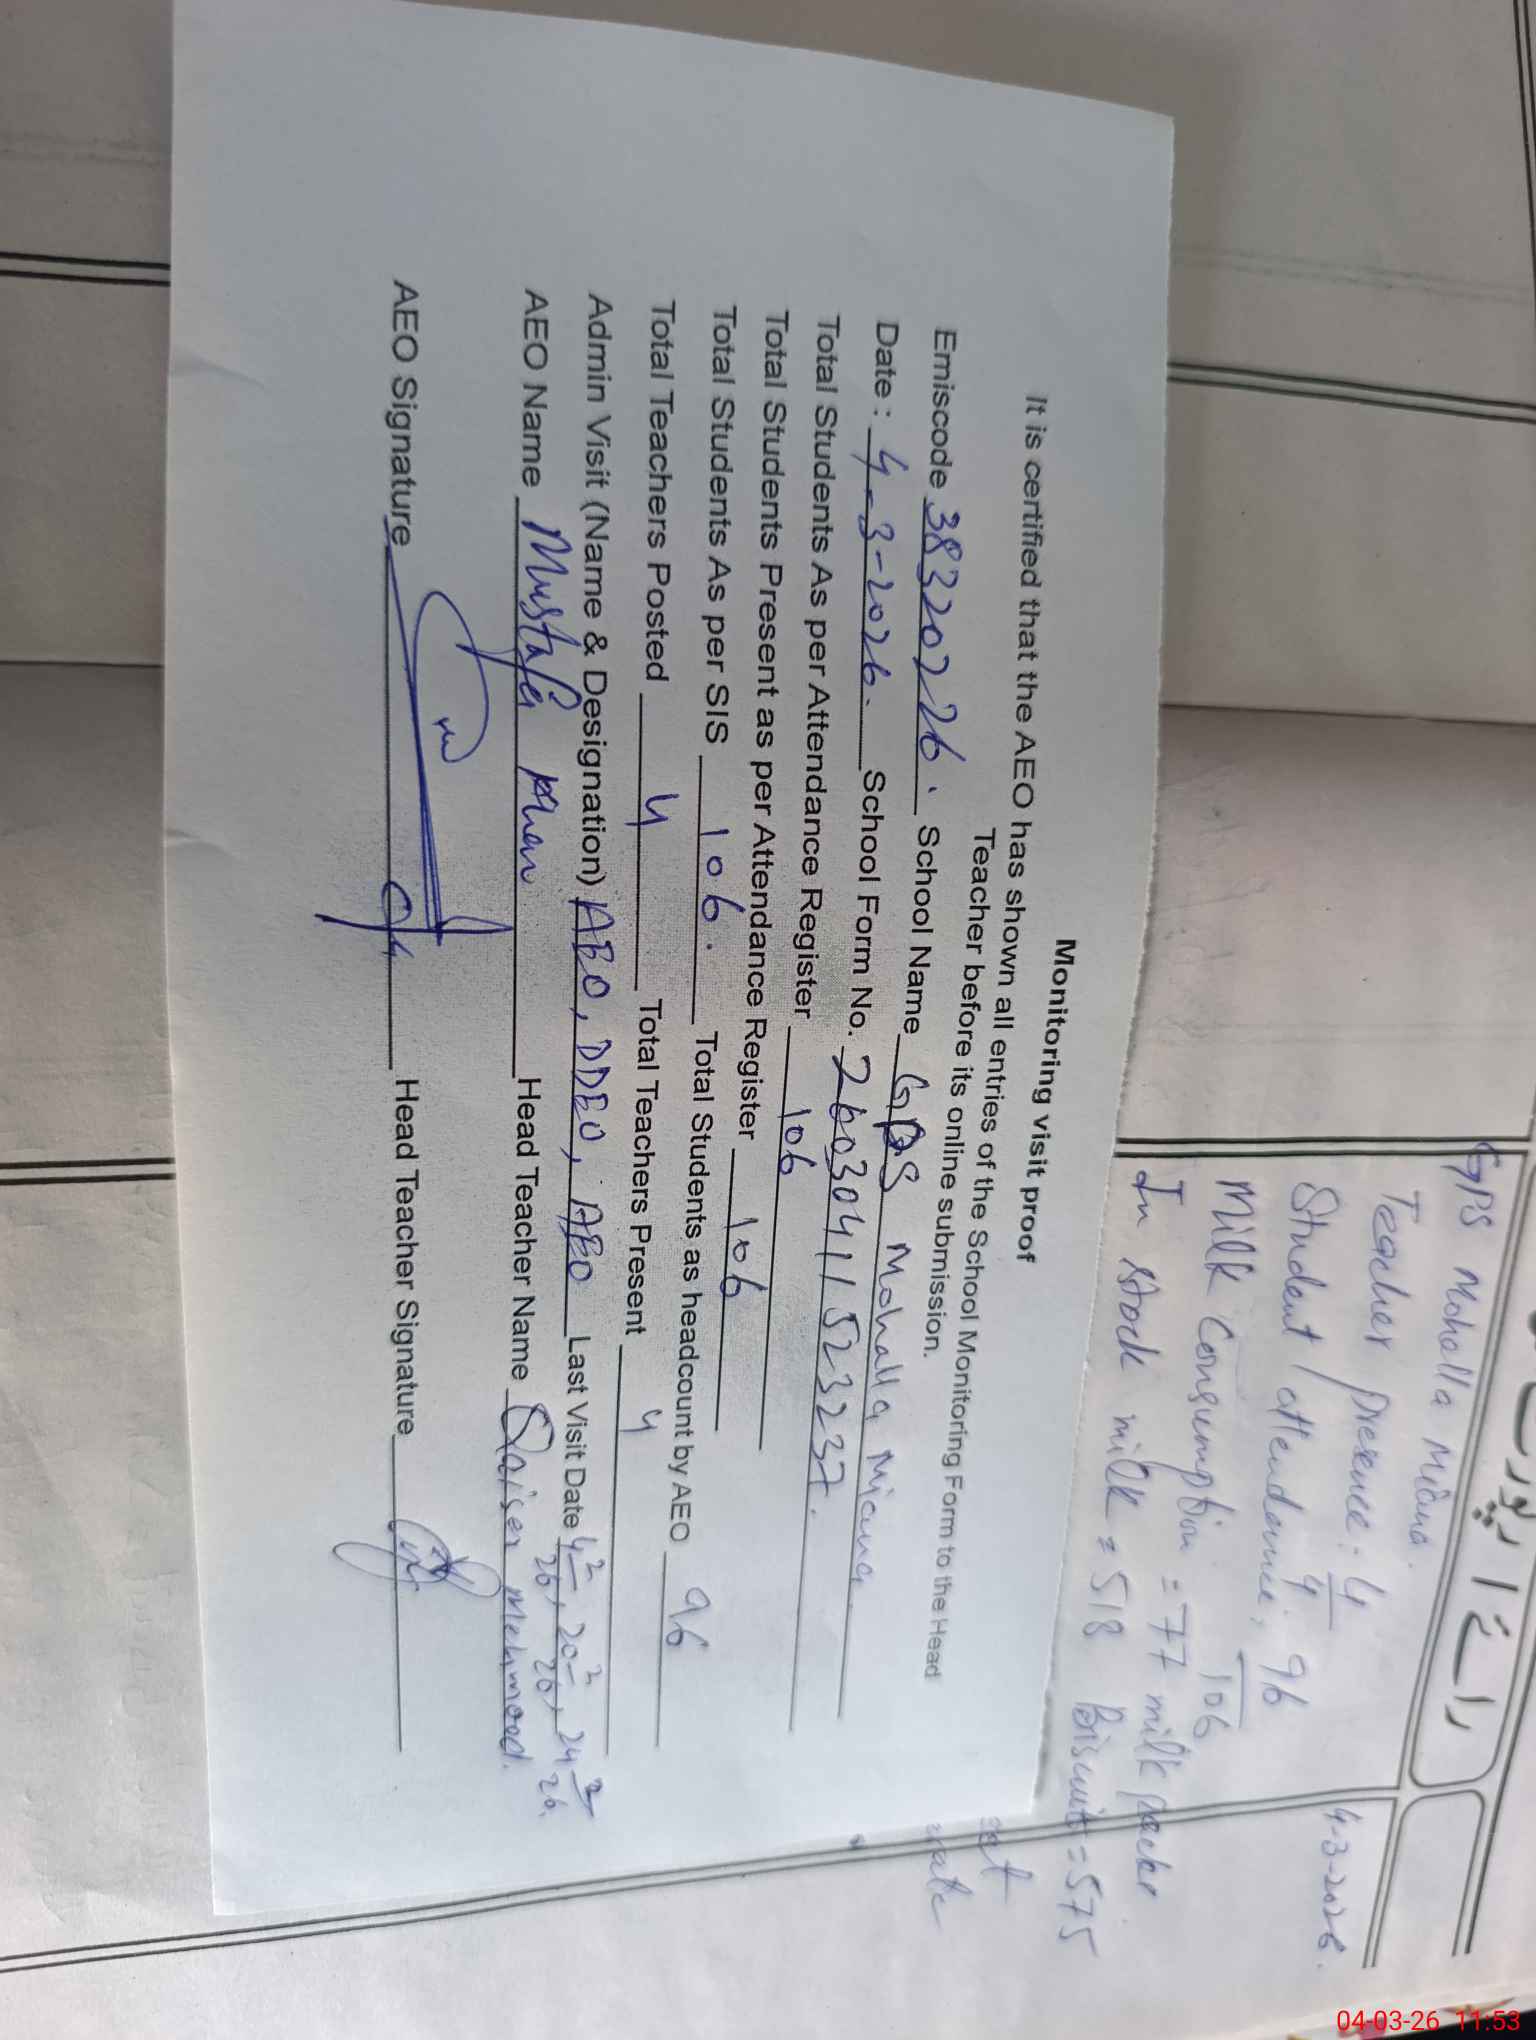 راۓ / رپورٹ
4-3-2026.
GPS Mohalla Miana.
Teacher presence: 4/4
Student attendance: 96/106
Milk Consumption = 77 milk packe
In stock milk = 518 Biscuit = 575
Monitoring visit proof
It is certified that the AEO has shown all entries of the School Monitoring Form to the Head
Teacher before its online submission.
Emiscode 38320226. School Name GPS Mohalla Miana
Date: 4-3-2026. School Form No. 26030411523237.
Total Students As per Attendance Register 106
Total Students Present as per Attendance Register 106
Total Students As per SIS 106. Total Students as headcount by AEO 96
Total Teachers Posted 4 Total Teachers Present 4
Admin Visit (Name & Designation) AEO, DDEO, AEO Last Visit Date 4-2-26, 20-2-26, 24-2-26.
AEO Name Mustafa Khan Head Teacher Name Qaiser Mehmood.
AEO Signature Head Teacher Signature
04-03-26 11:53